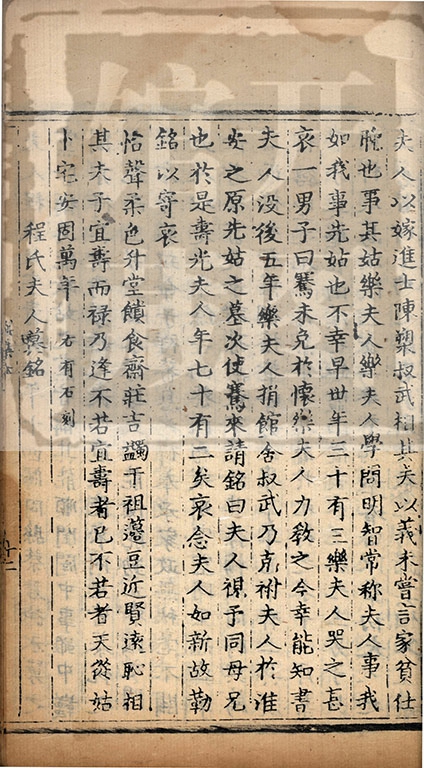 夫人以嫁進士陳槼叔武相其夫以義未嘗言家貧仕
晚也事其姑樂夫人樂夫人學問明智常称夫人事我
如我事先姑也不幸早世年三十有三樂夫人哭之甚
哀一男子曰騫未免於懷樂夫人力教之今幸能知書
夫人没後五年樂夫人捐館舍叔武乃克祔夫人於淮
安之原先姑之墓次使騫來請銘曰夫人視予同母兄
也於是壽光夫人年七十有二矣哀念夫人如新故勒
銘以寄哀
怡聲柔色升堂饋食齋莊吉蠲于祖籩豆近賢遠恥相
其夫子宜壽而禄乃逢不若宜壽者已不若者天從姑
卜宅安固萬年 右有石刻
程氏夫人墓銘